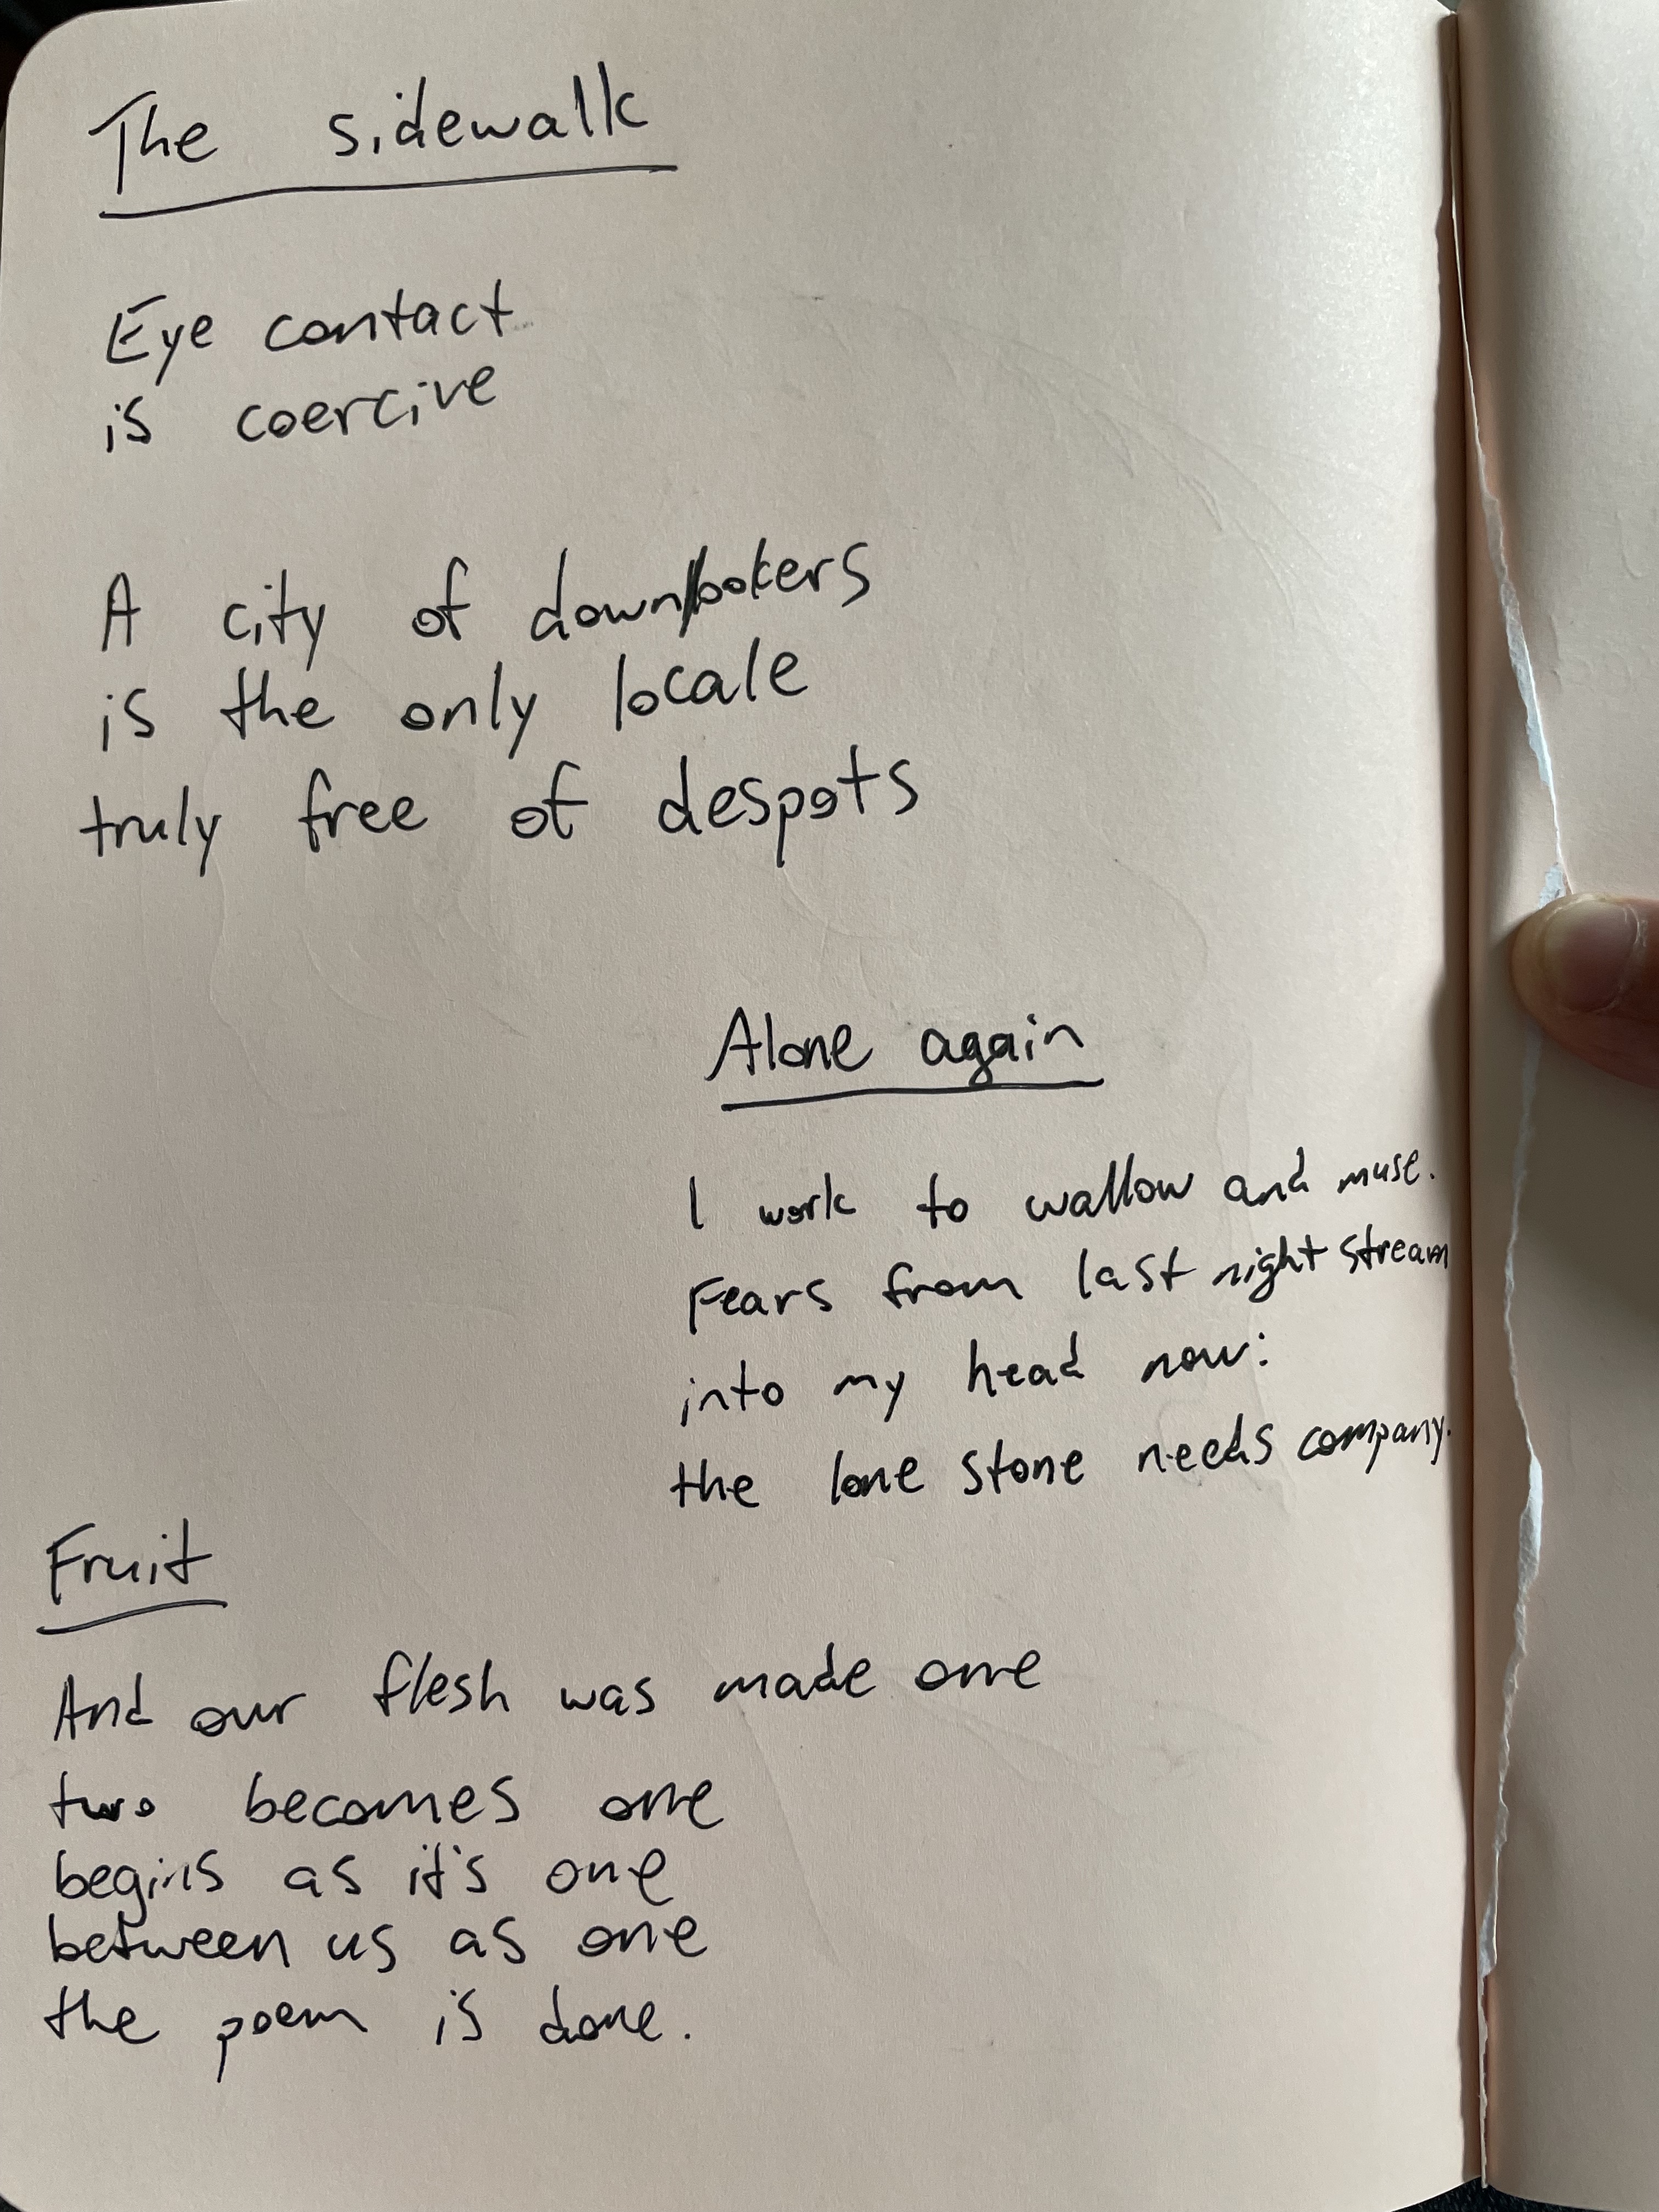 The sidewalk
Eye contact
is coercive
A city of downlookers
is the only locale
truly free of despots
Alone again
I work to wallow and muse.
Fears from last night stream
into my head now:
the lone stone needs company.
Fruit
And our flesh was made one
two becomes one
begins as it's one
between us as one
the poem is done.